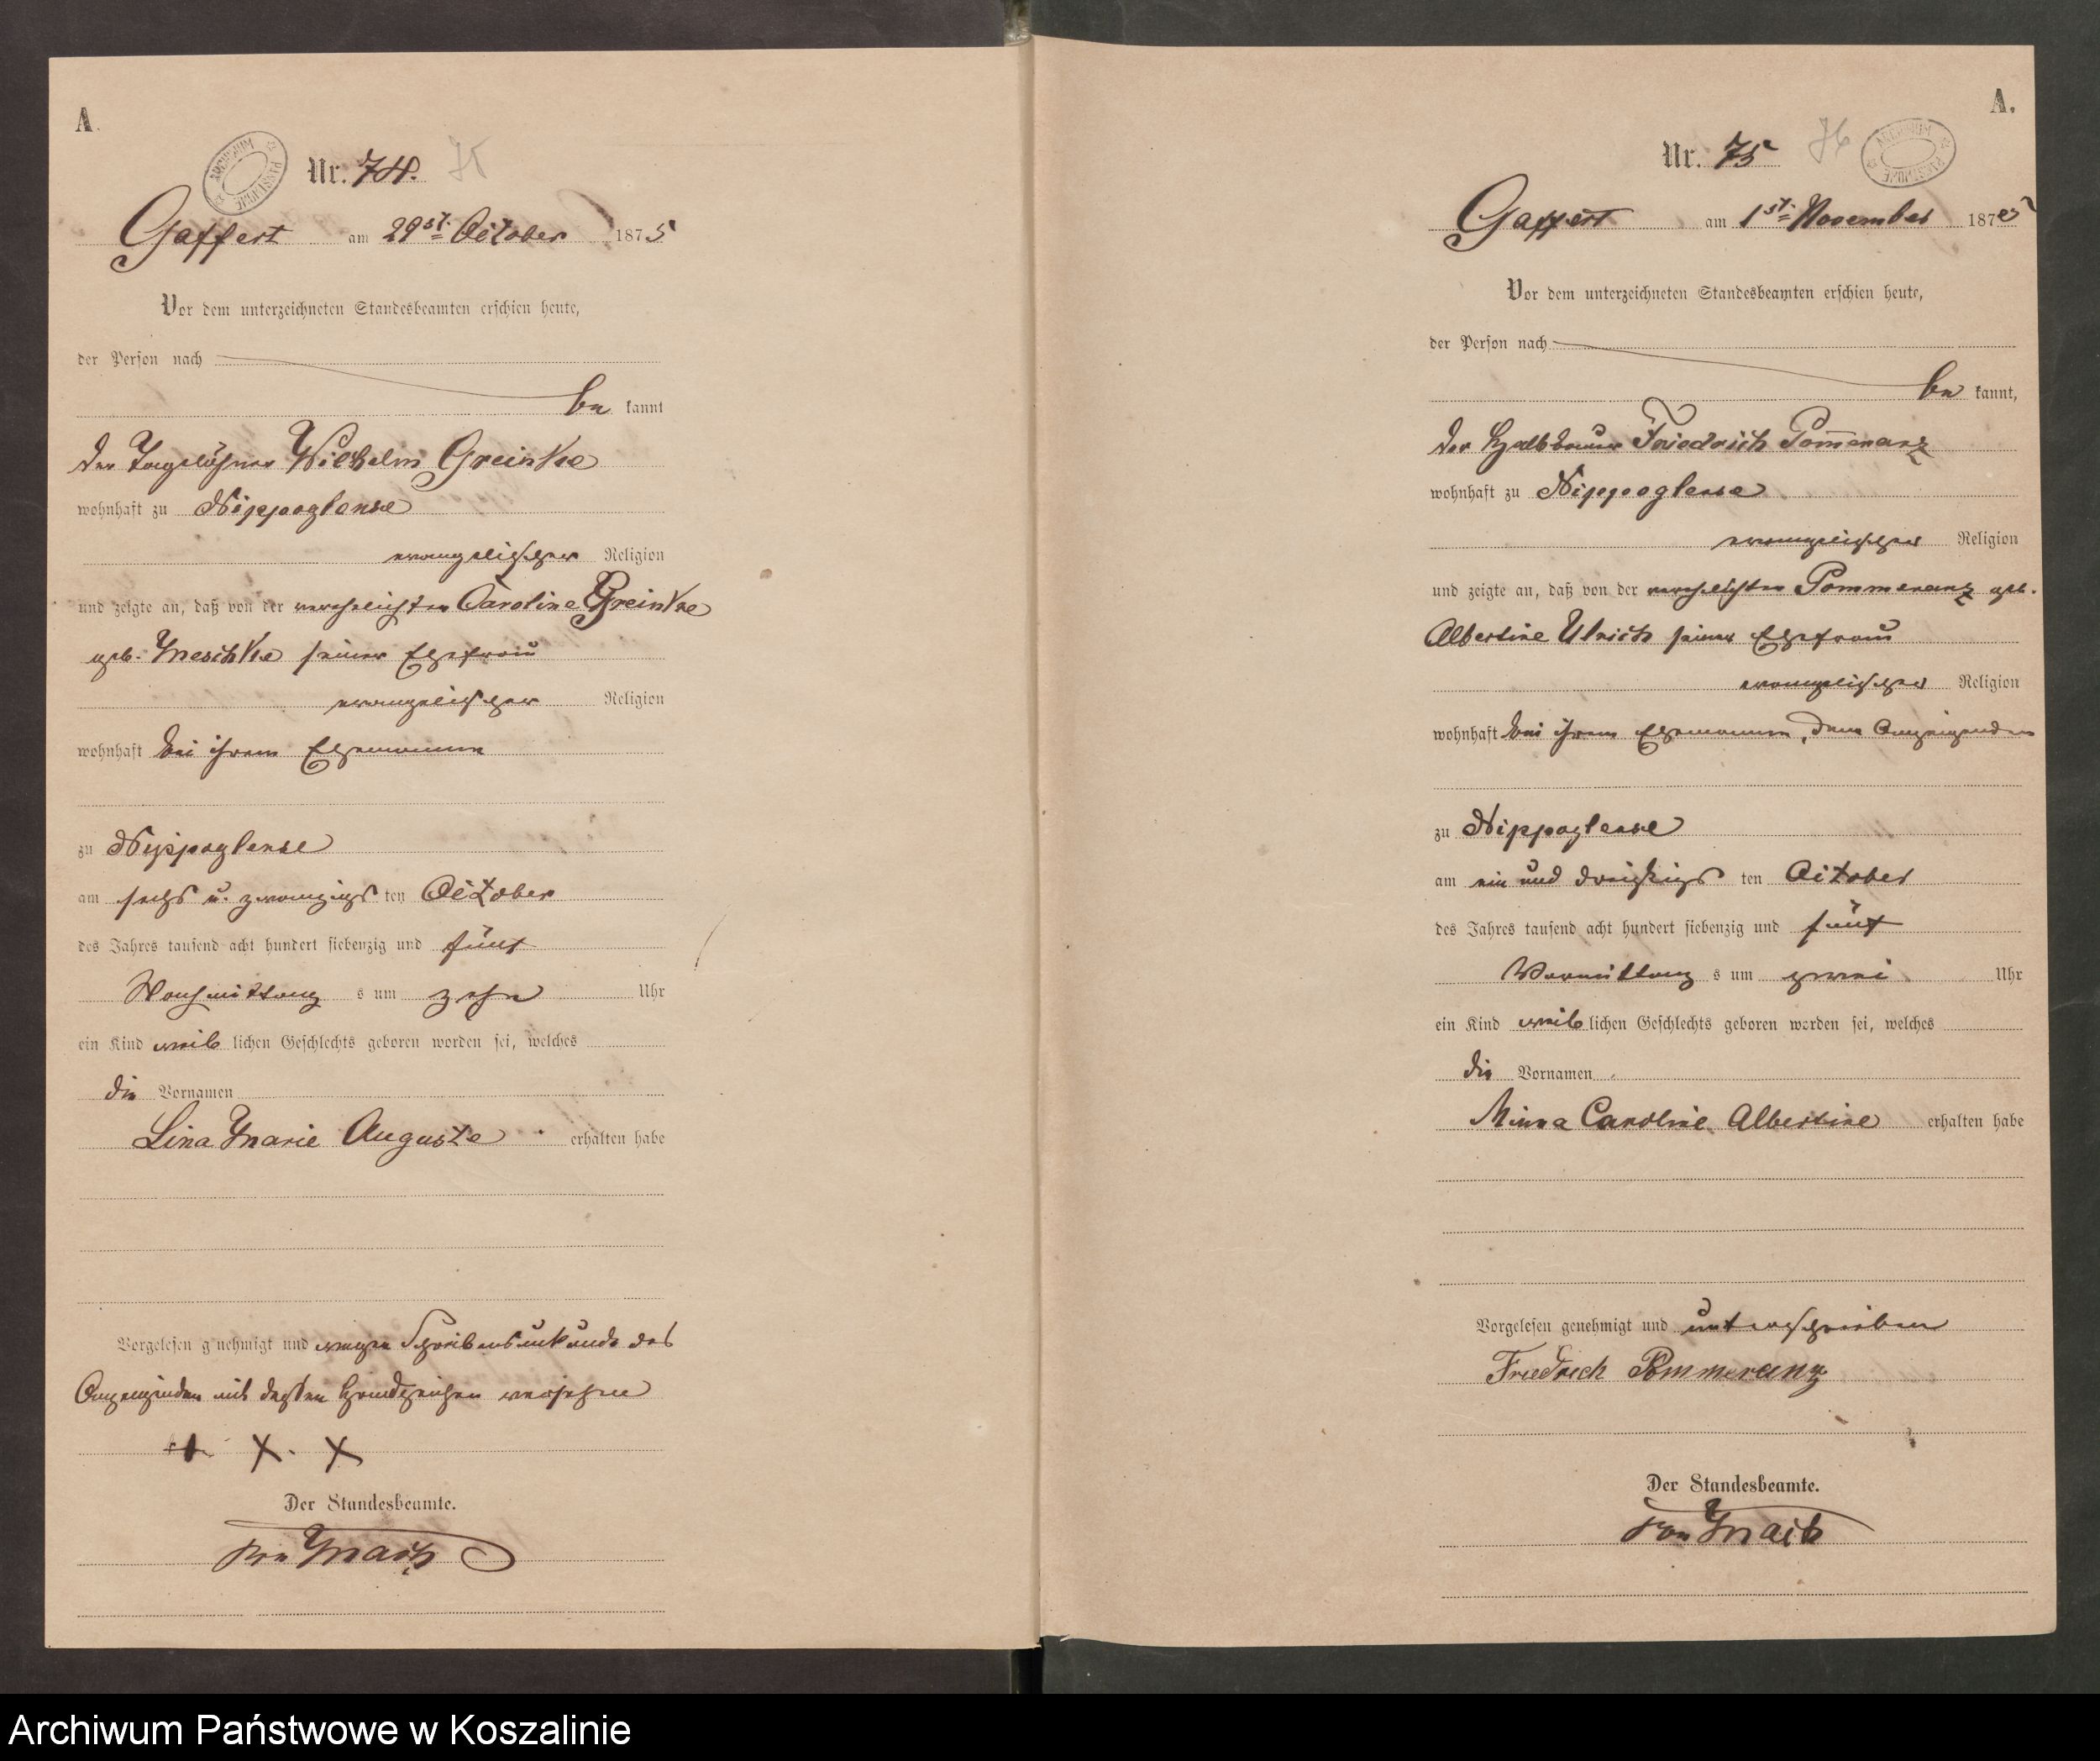 A.
ARCHIWUM PAŃSTWOWE
Nr. 74. 75
Gaffert am 29st. October 1875
Vor dem unterzeichneten Standesbeamten erschien heute,
der Person nach
be kannt
der Tagelöhner Wilhelm Greinke
wohnhaft zu Nippoglense
evangelischer Religion
und zeigte an, daß von der verehelichten Caroline Greinke
geb. Meschke seiner Ehefrau
evangelischer Religion
wohnhaft bei ihrem Ehemanne
zu Nippoglense
am sechs u. zwanzigs ten October
des Jahres tausend acht hundert siebenzig und fünf
Nachmittag s um zehn Uhr
ein Kind weib lichen Geschlechts geboren worden sei, welches
die Vornamen
Lina Marie Auguste erhalten habe
Vorgelesen genehmigt und wegen Schreibensunkunde des
Anzeigenden mit dessen Handzeichen versehen
+ X. X
Der Standesbeamte.
von Mach
A.
Nr. 75 76
ARCHIWUM PAŃSTWOWE
Gaffert am 1st. November 1875
Vor dem unterzeichneten Standesbeamten erschien heute,
der Person nach
be kannt,
der Halbbauer Friedrich Pom̅eranz
wohnhaft zu Nippoglense
evangelischer Religion
und zeigte an, daß von der verehelichten Pommeranz geb.
Albertine Ulrich seiner Ehefrau
evangelischer Religion
wohnhaft bei ihrem Ehemanne, dem Anzeigenden
zu Nippoglense
am ein und dreißigs ten October
des Jahres tausend acht hundert siebenzig und fünf
Vormittag s um zwei Uhr
ein Kind weib lichen Geschlechts geboren worden sei, welches
die Vornamen
Minna Caroline Albertine erhalten habe
Vorgelesen genehmigt und unterschrieben
Friedrich Pommeranz
Der Standesbeamte.
von Mach
Archiwum Państwowe w Koszalinie